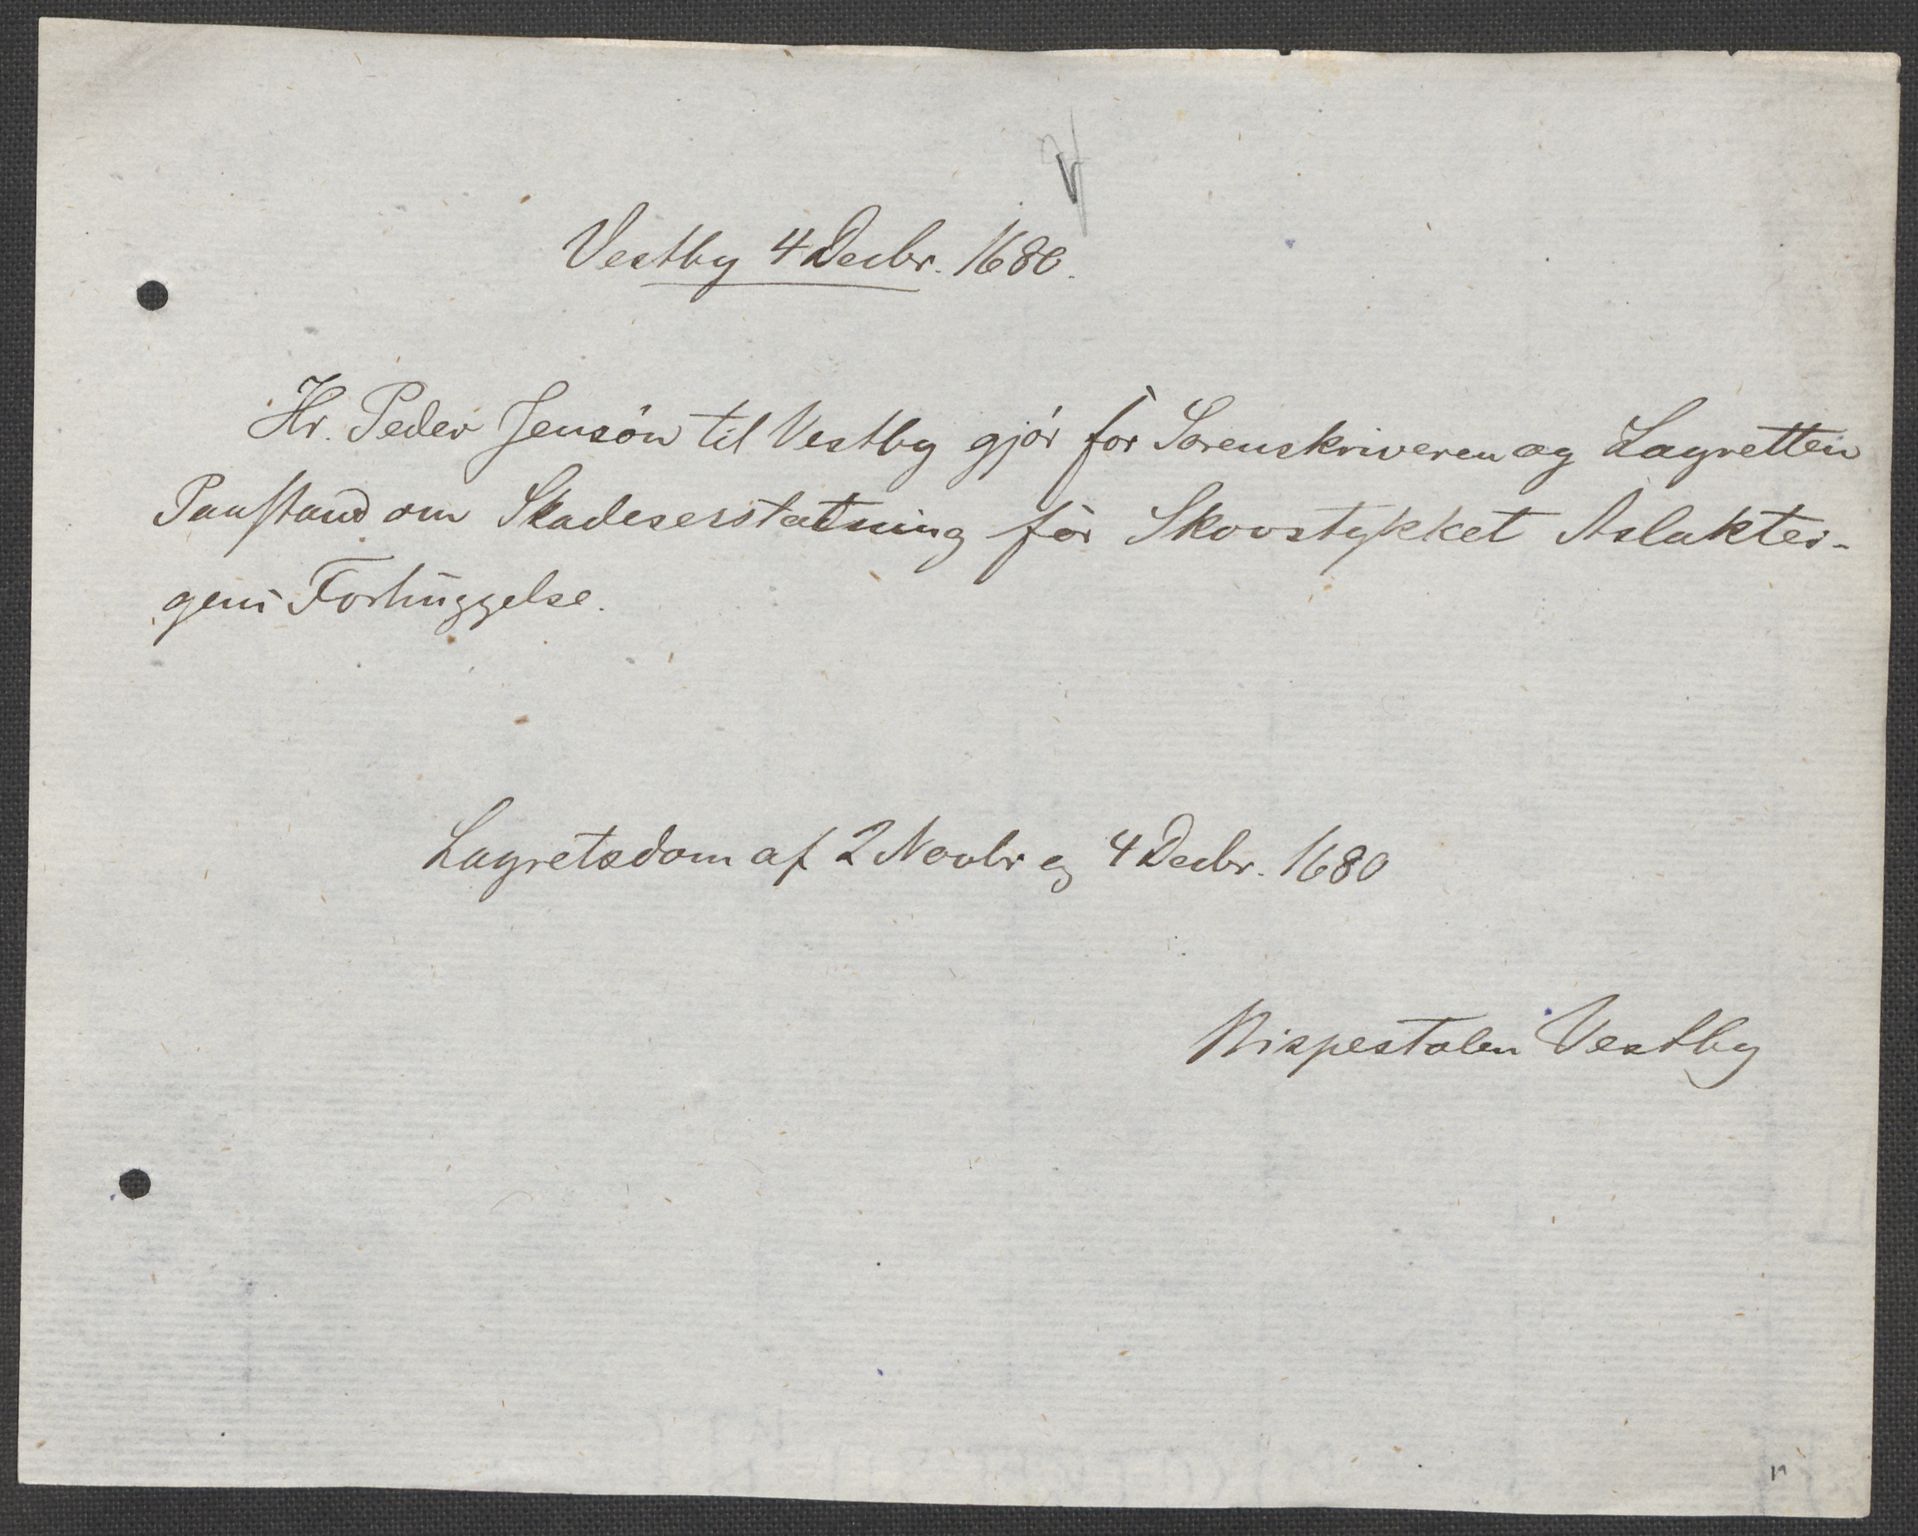 Vestby 4 Decbr. 1680.
Hr. Peder Jensön til Vestby gjör for Sorenskriveren og Lagretten
Paastand om Skadeserstatning för Skovstykket Aslakter-
gens Forhuggelse.
Lagretsdom af 2 Novbr og 4 Decbr. 1680
Bispestolen Vestby